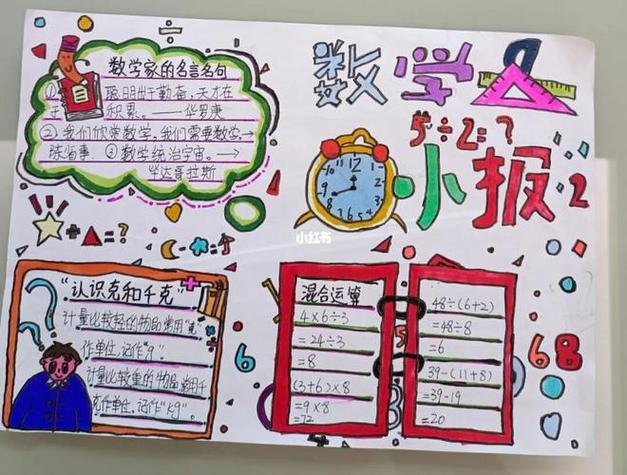 数学家的名言名句
①聪明出于勤奋,天才在
于积累。——华罗庚
②我们欣赏数学,我们需要数学→
陈省身 ③数学统治宇宙。→
毕达哥拉斯
数学
小报
5÷2=?
2
12
11
10
9
8
7
6
5
4
3
2
1
小红书
+ = ?
- = 个
"认识克和千克"
计量比较轻的物品常用"克"
作单位,记作"g"
计量比较重的物品常用千
克作单位,记作"kg"
6
混合运算
4×6÷3
=24÷3
=8
(3+6)×8
=9×8
=72
5
48÷(6+2)
=48÷8
=6
39-(11+8)
=39-19
=20
68